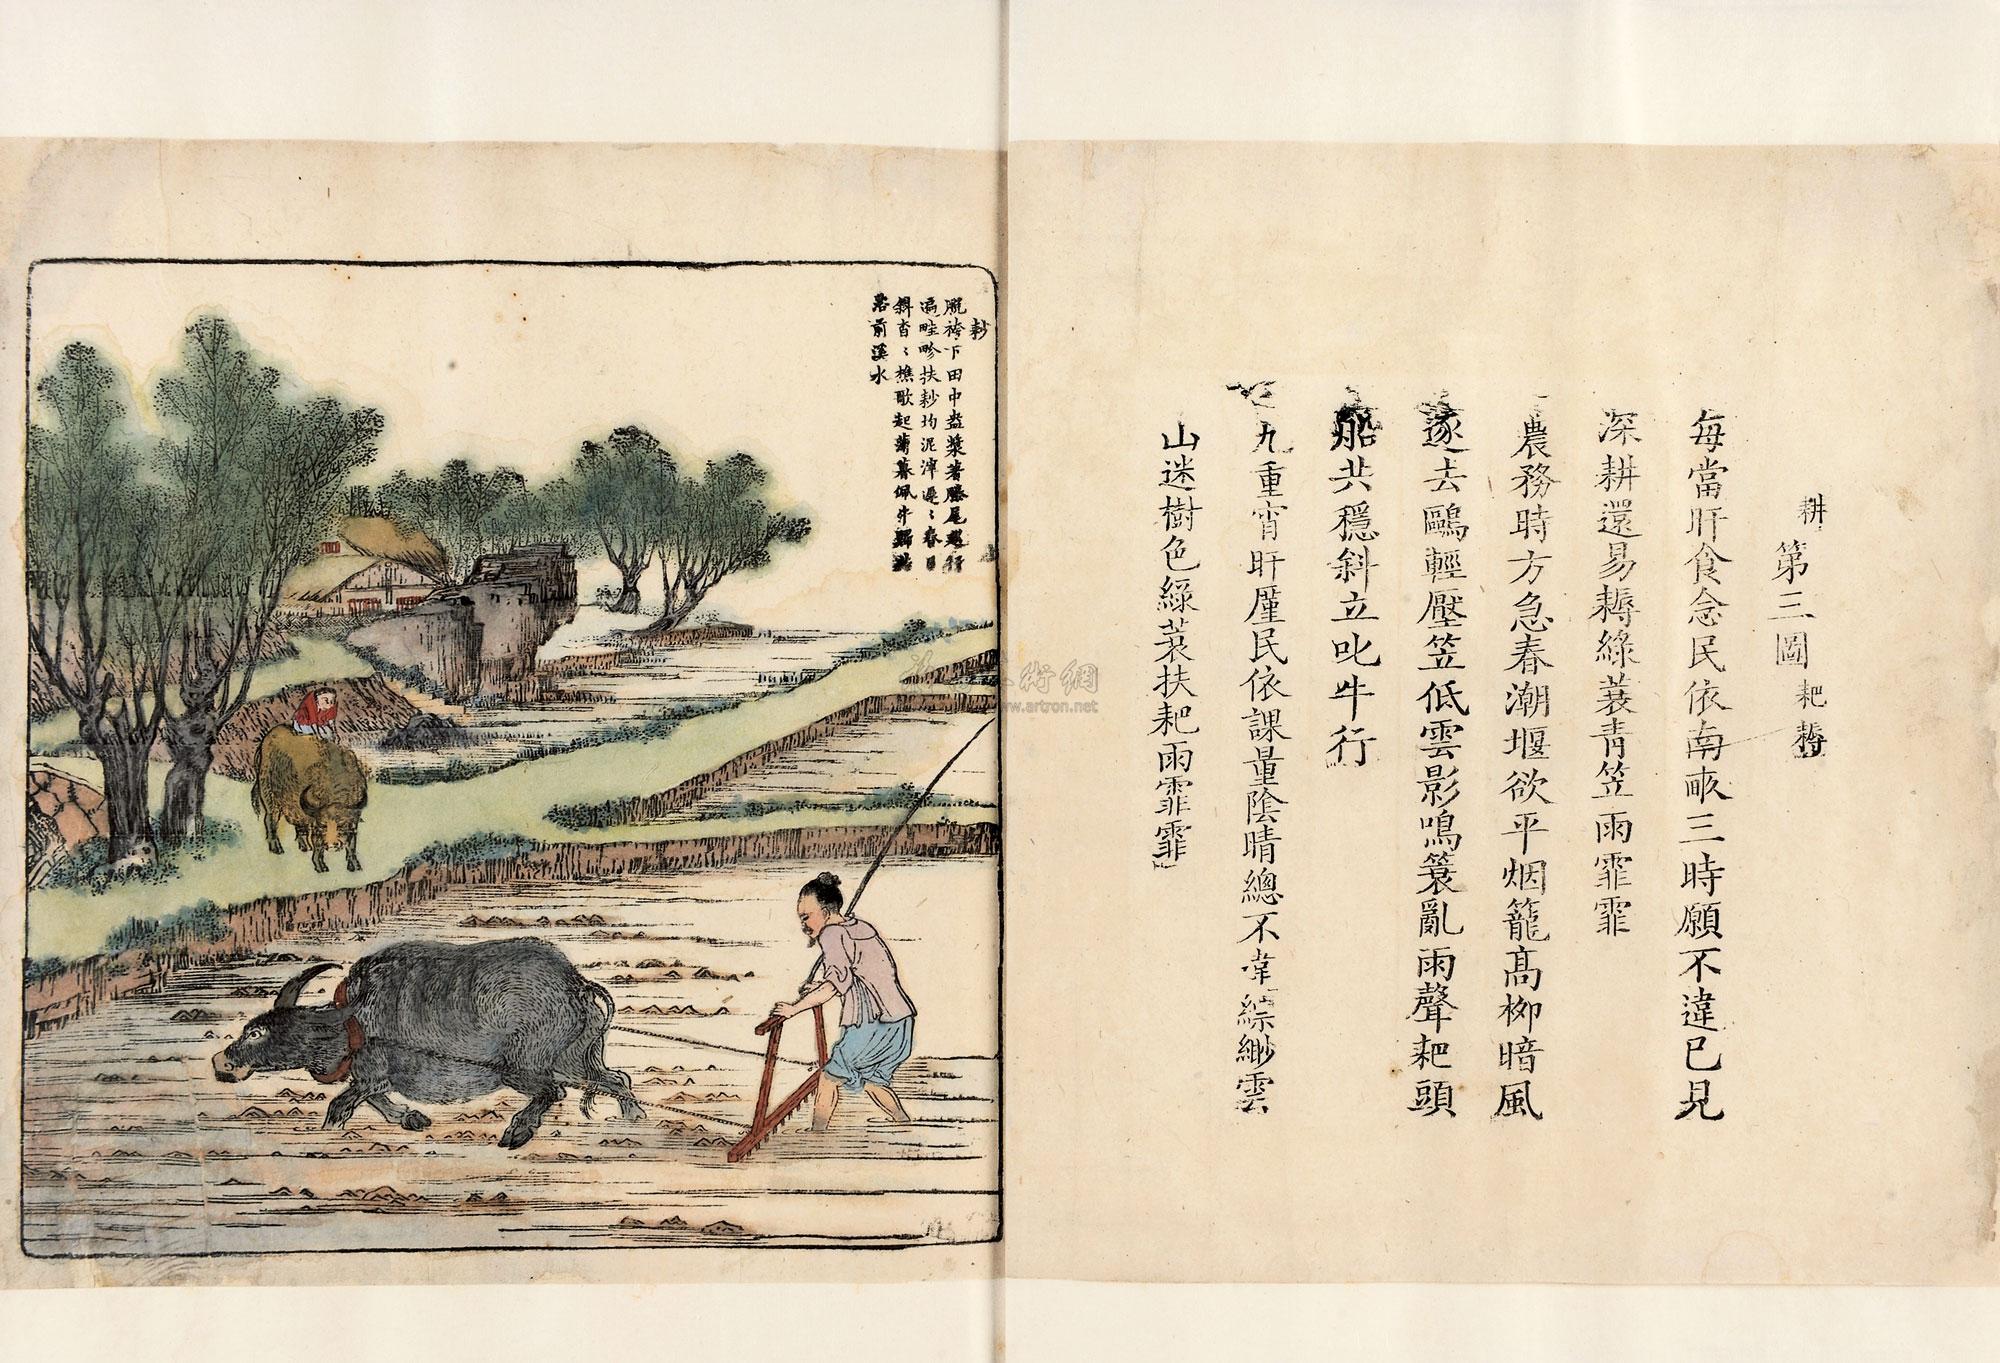 耕第三圖 耙耨
每當旰食念民依南畝三時願不違已見
深耕還易耨綠蓑青笠雨霏霏
農務時方急春潮堰欲平烟籠高柳暗風
逐去鷗輕壓笠低雲影鳴蓑亂雨聲耙頭
船共穩斜立叱牛行
九重宵旰厪民依課量陰晴總不違縹緲雲
山迷樹色綠蓑扶耙雨霏霏
耖
脫袴下田中盎漿著塍尾巡行
遍畦畛扶耖均泥滓遲遲春日
斜杳杳樵歌起薄暮佩牛歸共
浴前溪水
術網
www.artron.net